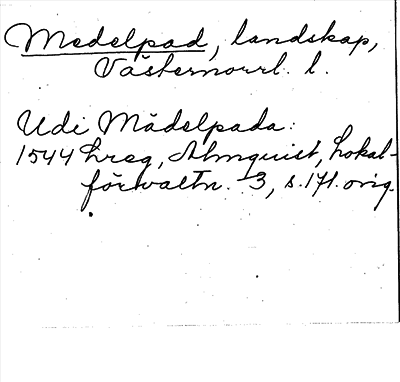 Medelpad, landskap,
Västernorrl. l.
Udi Mädelpada:
1544 hreg, Almquist, Lokal-
förvaltn. 3, s. 171. orig.